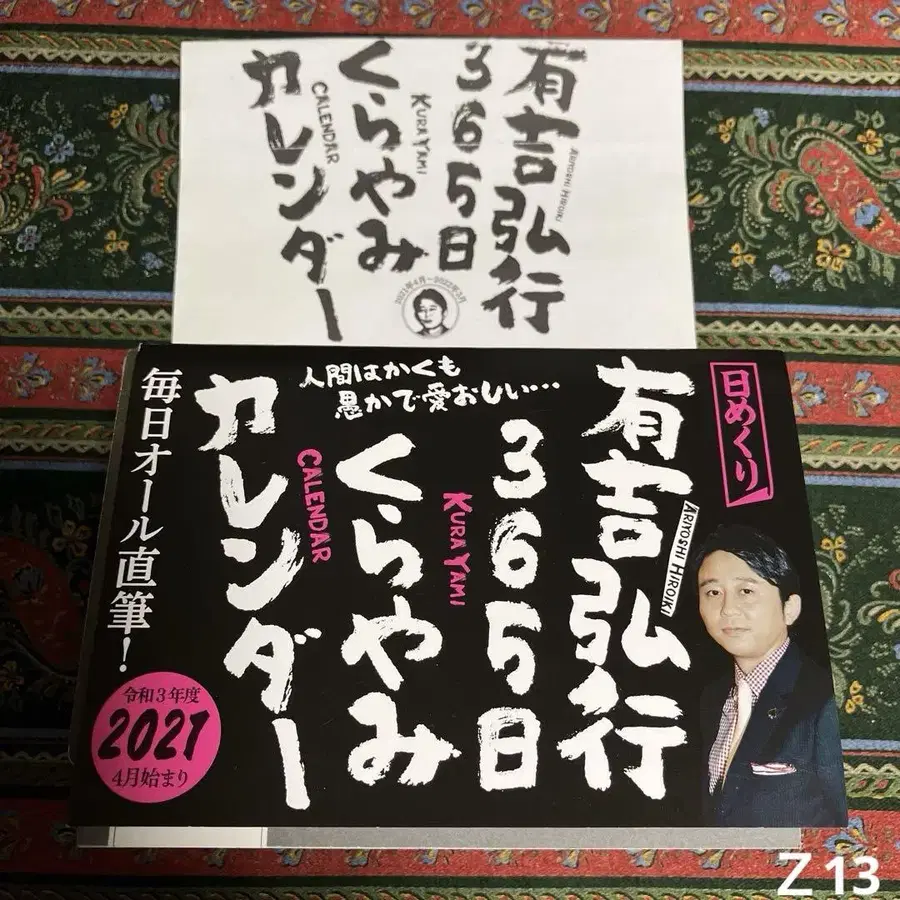 有吉弘行
ARIYOSHI HIROIKI
365日
くらやみ
KURAYAMI
カレンダー
CALENDAR
2021年4月~2022年3月
日めくり
有吉弘行
ARIYOSHI HIROIKI
人間はかくも
愚かで愛おしい…
365日
くらやみ
KURAYAMI
カレンダー
CALENDAR
毎日オール直筆!
令和3年度
2021
4月始まり
Z 13